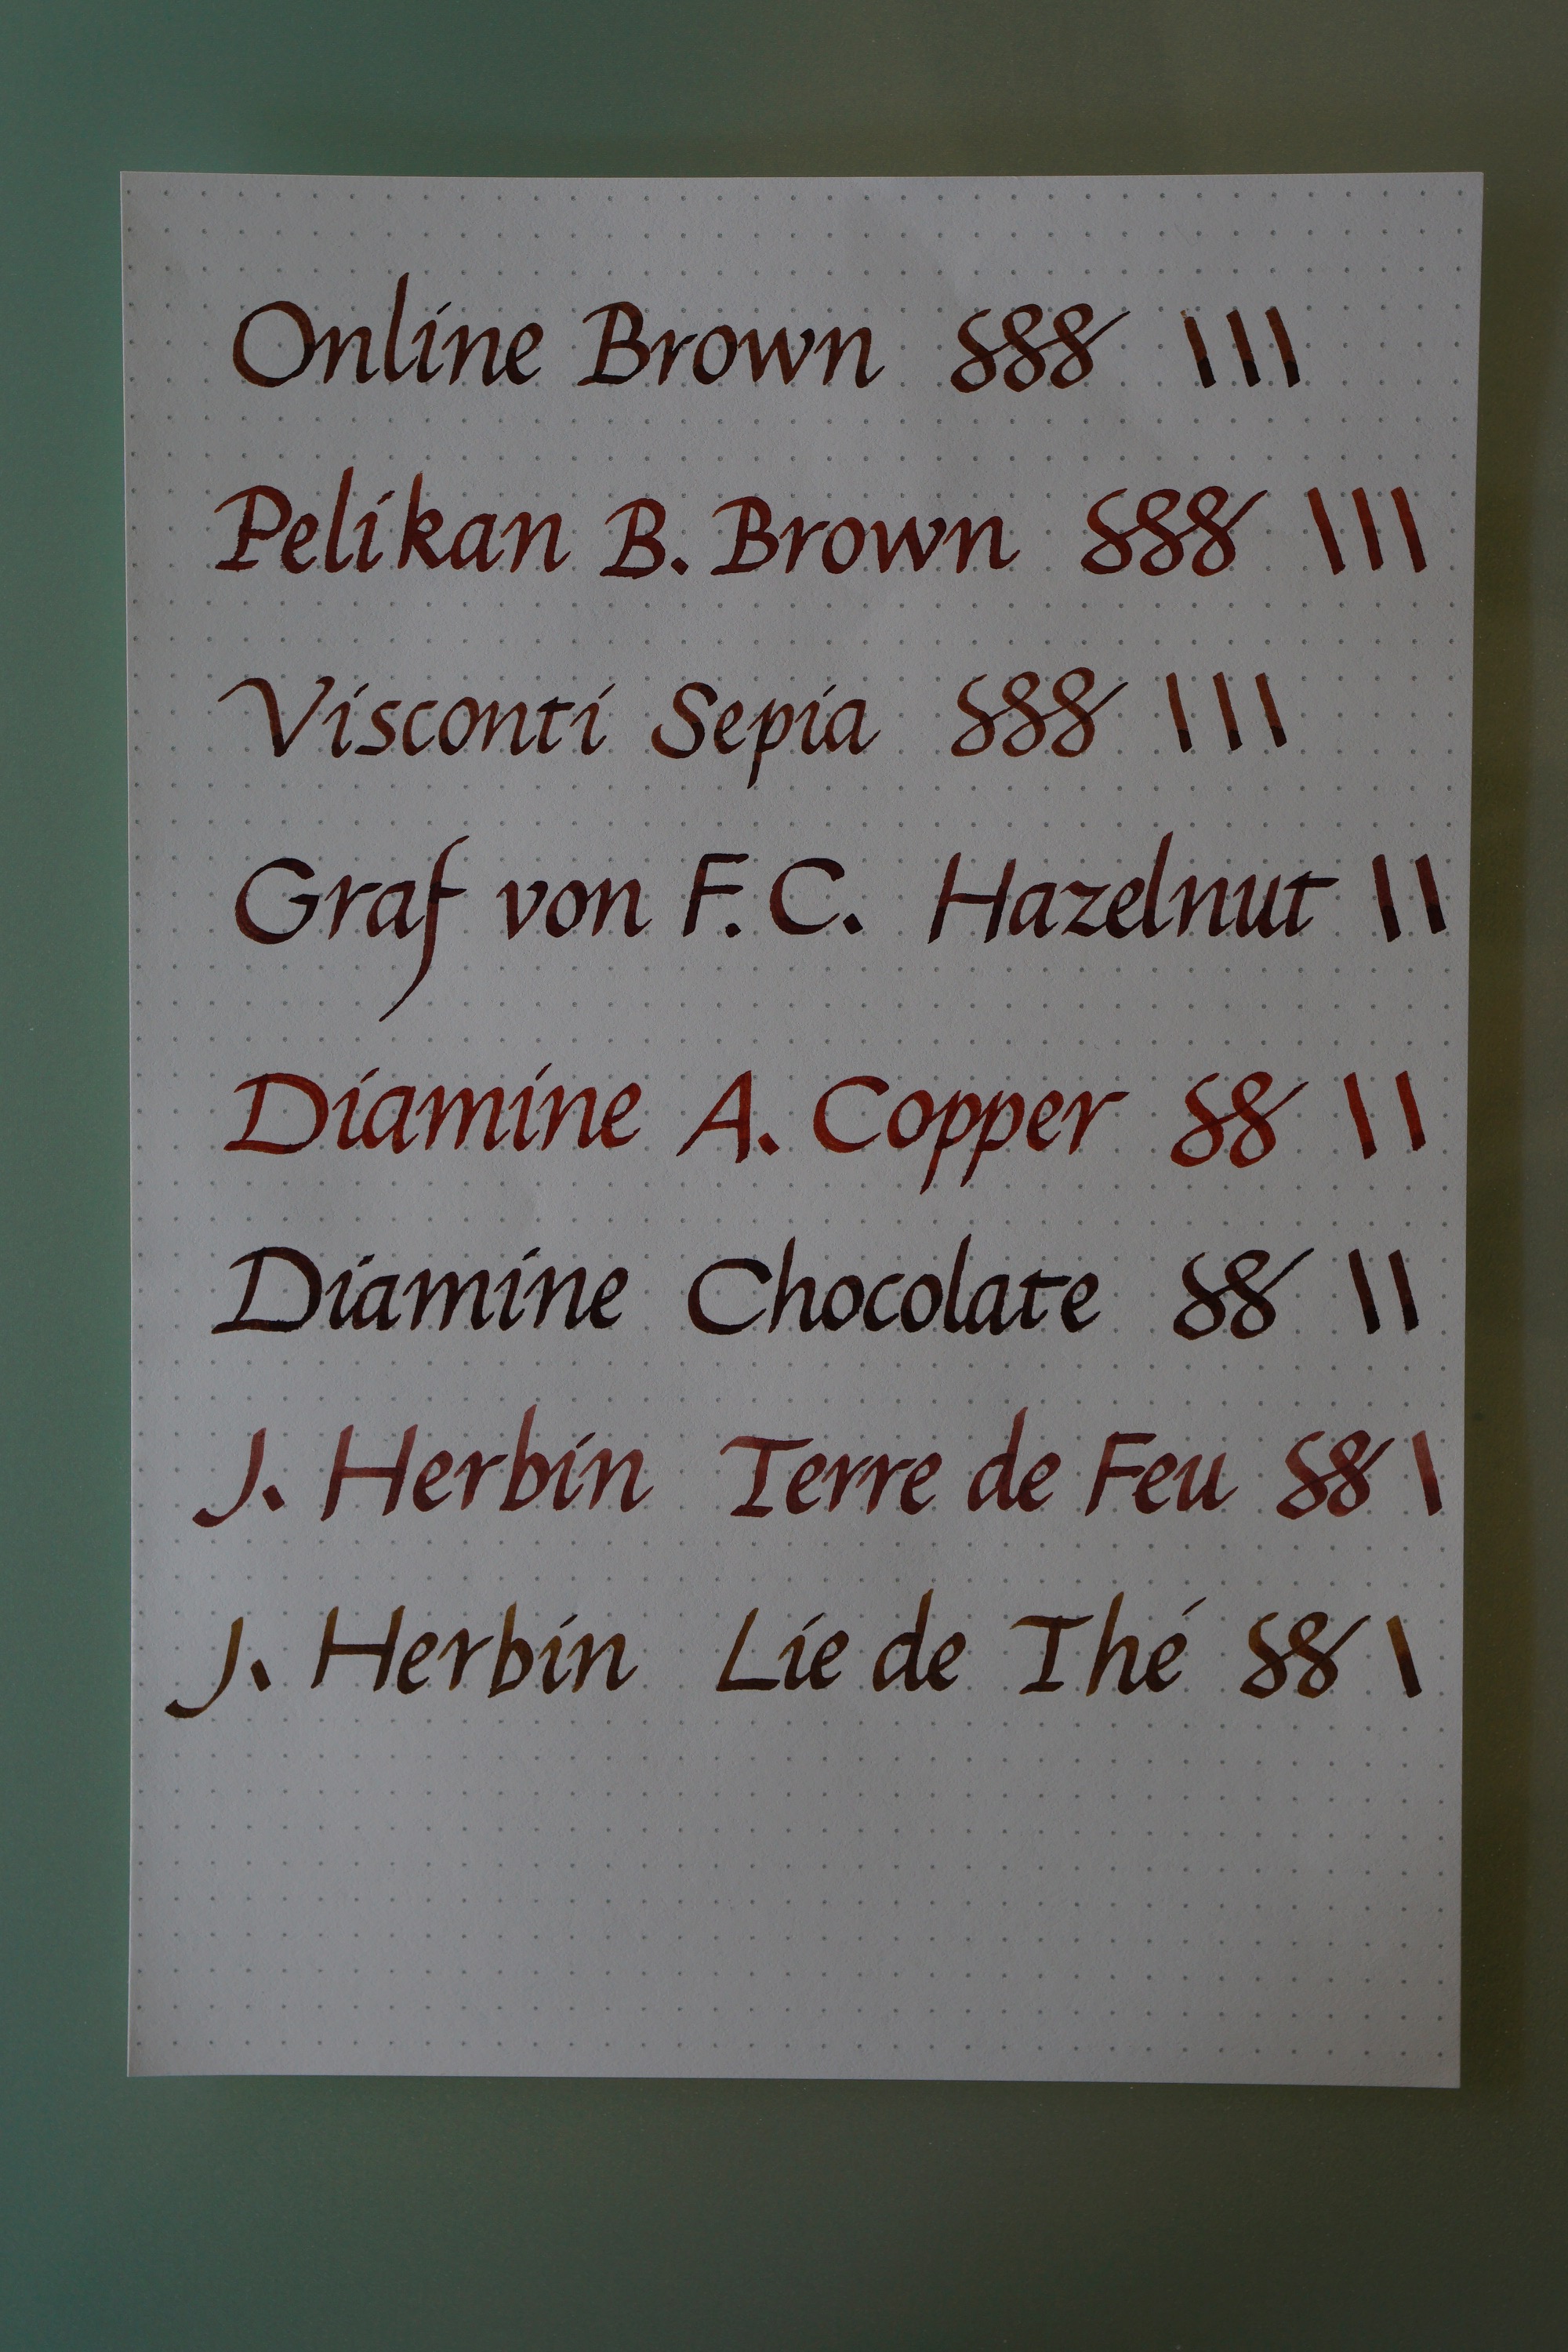 Online Brown 888 |||
Pelikan B. Brown 888 |||
Visconti Sepia 888 |||
Graf von F.C. Hazelnut ||
Diamine A. Copper 88 ||
Diamine Chocolate 88 ||
J. Herbin Terre de Feu 88 |
J. Herbin Lie de Thé 88 |